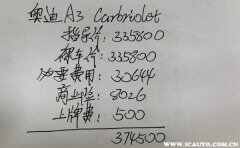 奥迪A3 Carbriolet
指导价：335800
裸车价：335800
必要费用：30644
商业险：8026
上牌费：500
374500
www.5CAUTO.com.cn